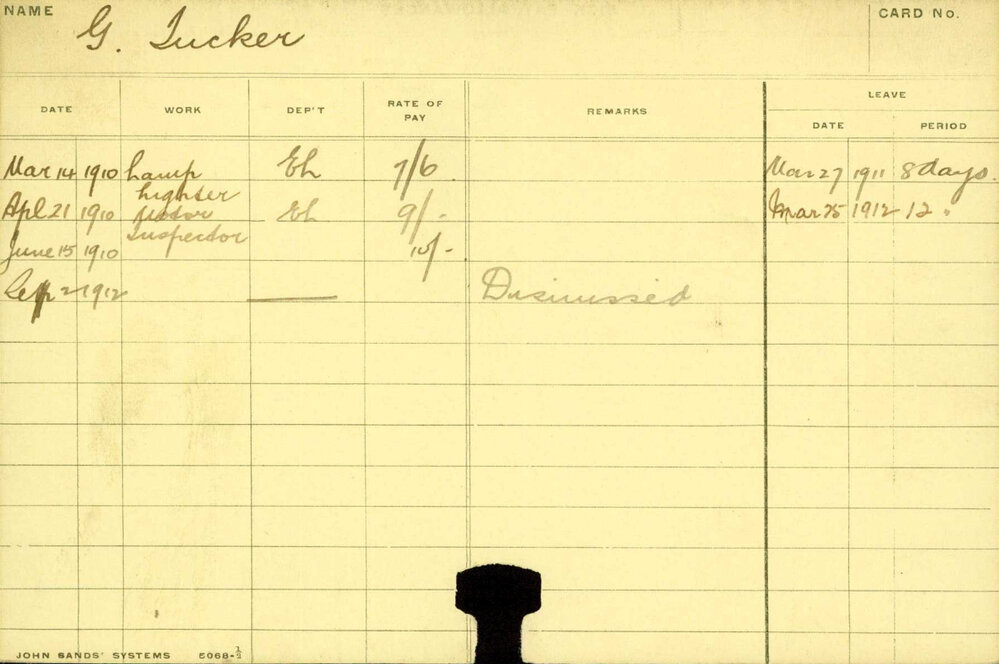 NAME G. Tucker CARD No.
LEAVE
DATE WORK DEP'T RATE OF PAY REMARKS DATE PERIOD
Mar 14 1910 Lamp Eh 7/6 Mar 27 1911 8 days.
Lighter
Apl 21 1910 Motor Eh 9/- Mar 25 1912 12 "
Inspector
June 15 1910 10/-
Sep 2 1912 Dismissed
JOHN SANDS' SYSTEMS 5068-